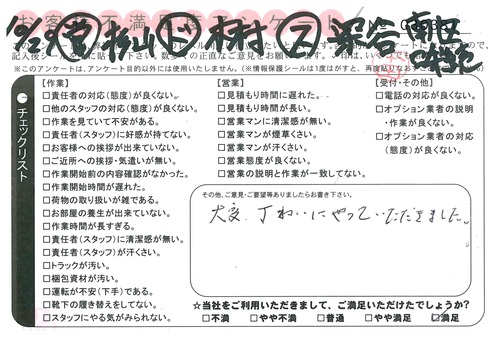 お客様不満足度アンケート
※このアンケートは、アンケート目的以外には使用いたしません。
チェックリスト
【作業】
□責任者の対応(態度)が良くない。
□他のスタッフの対応(態度)が良くない。
□作業を見ていて不安がある。
□責任者(スタッフ)に好感が持てない。
□お客様への挨拶が出来ていない。
□ご近所への挨拶・気遣いが無い。
□作業開始前の内容確認がなかった。
□作業開始時間が遅れた。
□荷物の取り扱いが雑である。
□お部屋の養生が出来ていない。
□作業時間が長すぎる。
□責任者(スタッフ)に清潔感が無い。
□責任者(スタッフ)が汗くさい。
□トラックが汚い。
□梱包資材が汚い。
□運転が不安(下手)である。
□靴下の履き替えをしてない。
□スタッフにやる気がみられない。
【営業】
□見積もり時間に遅れた。
□見積もり時間が長い。
□営業マンに清潔感が無い。
□営業マンが煙草くさい。
□営業マンが汗くさい。
□営業態度が良くない。
□営業の説明と作業が一致してない。
【受付・その他】
□電話の対応が良くない。
□オプション業者の説明
・作業が良くない。
□オプション業者の対応
(態度)が良くない。
その他、ご意見・ご要望等ありましたらお書き下さい。
大変、丁ねいにやっていただきました。
☆当社をご利用いただきまして、ご満足いただけたでしょうか?
□不満 □やや不満 □普通 □やや満足 □満足